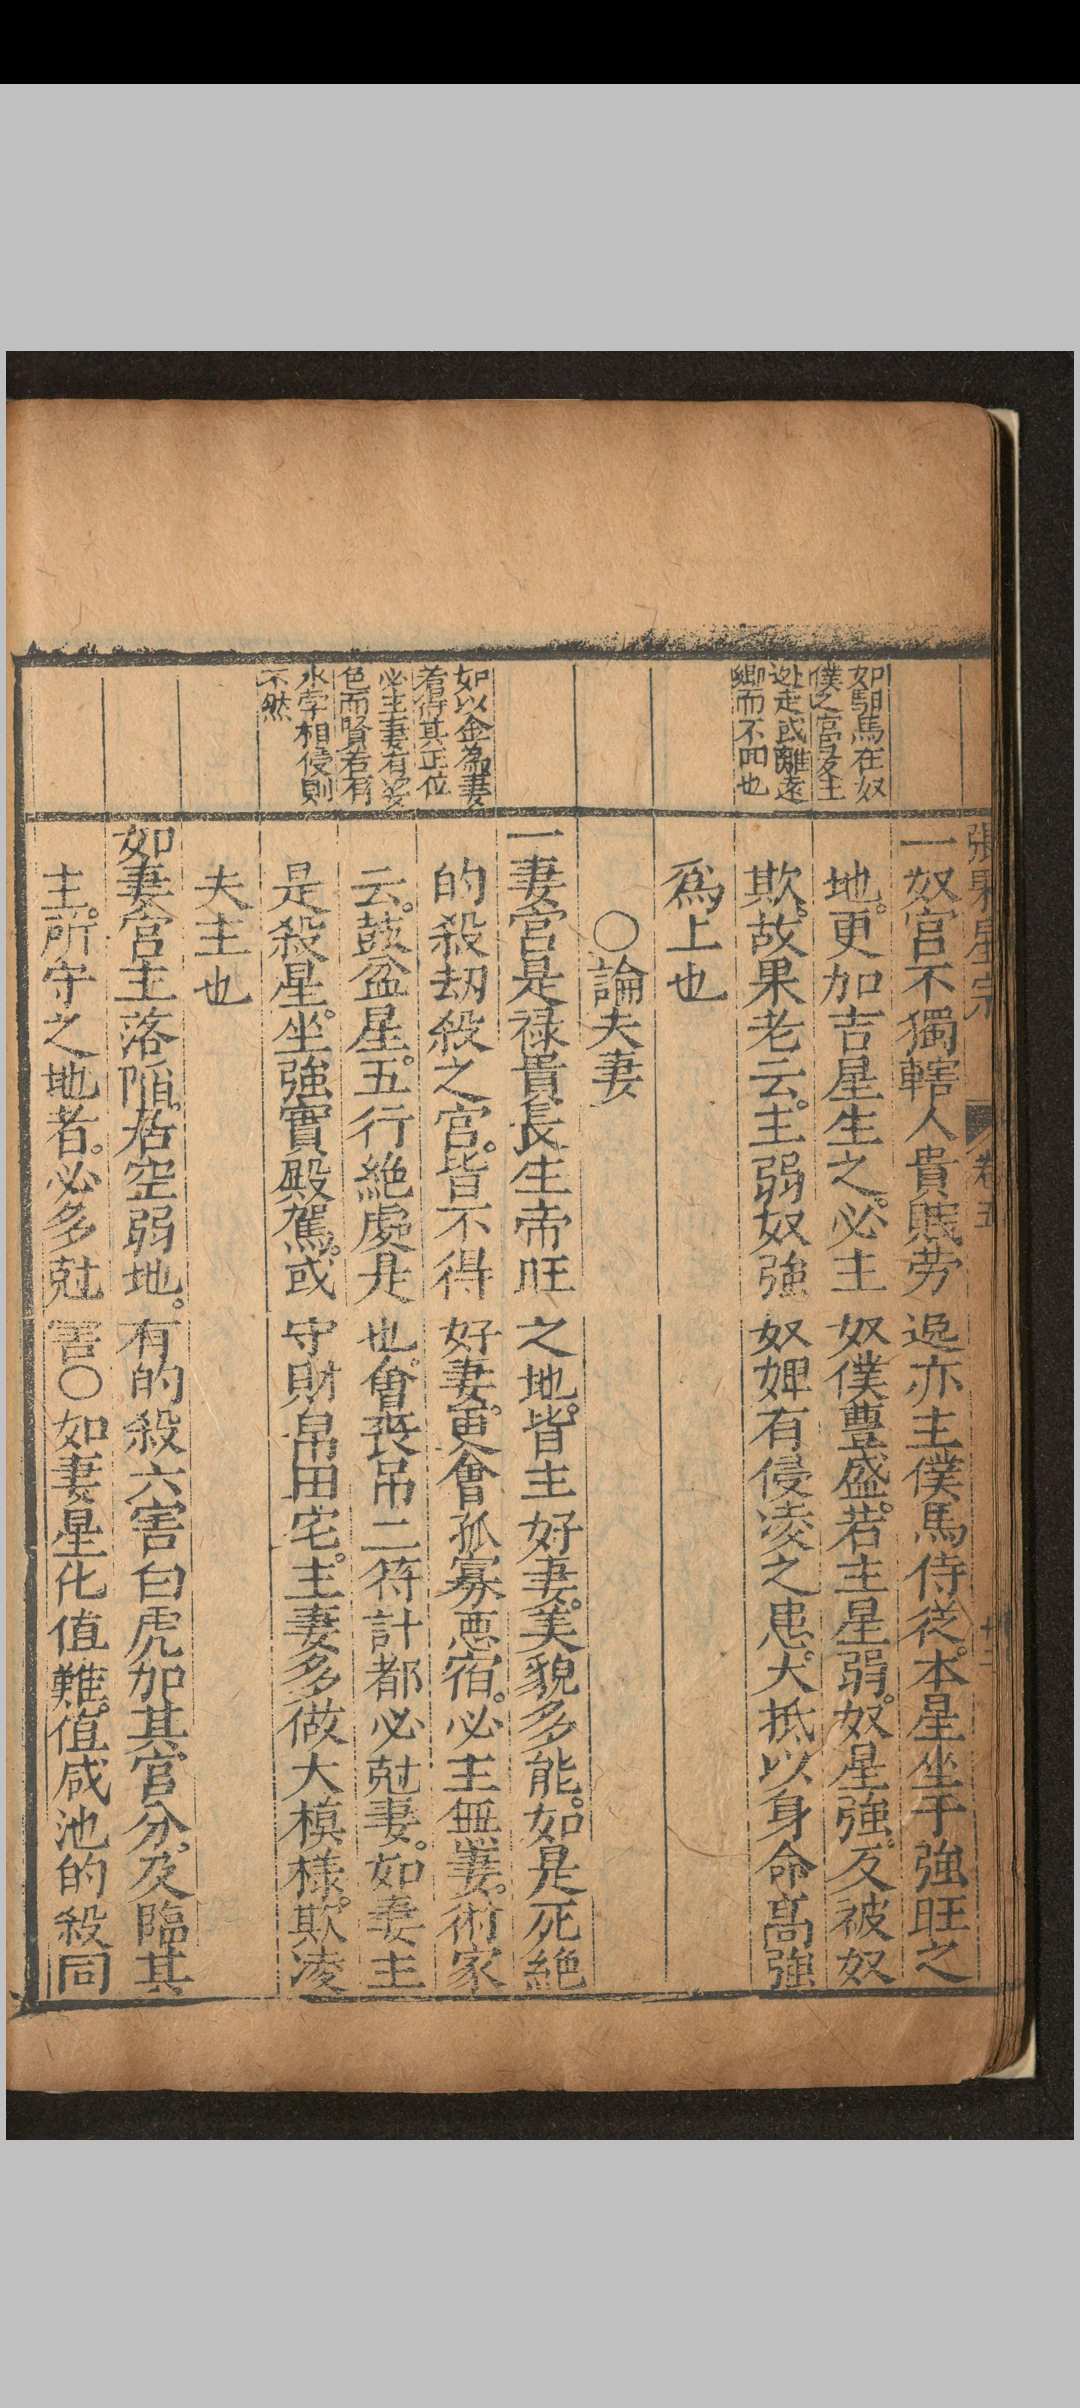 張果星宗
卷五
十二
如馹馬在奴
僕之宮及主
迯走或離遠
鄉而不囬也
一奴宮不獨轄人貴賤勞逸亦主僕馬侍從。本星坐于強旺之
地。更加吉星生之。必主奴僕豊盛。若主星弱。奴星強。反被奴
欺。故果老云。主弱奴強奴婢有侵凌之患。大抵以身命高強
爲上也
〇論夫妻
如以金為妻
若得其正位
必主妻有姿
色而賢若有
水孛相侵則
不然
一妻宮是禄貴長生帝旺之地。皆主好妻。美貌多能。如是死絶
的殺刼殺之宮。皆不得好妻。更會孤寡惡宿。必主無妻。術家
云。鼓盆星。五行絶處是也。會喪吊二符計都必尅妻。如妻主
是殺星。坐強實殿駕。或守財帛田宅。主妻多做大模樣。欺凌
夫主也
如妻宮主落陷。居空弱地。有的殺六害白虎加其宫分。及臨其
主。所守之地者。必多尅害〇如妻星化值難。值咸池的殺同